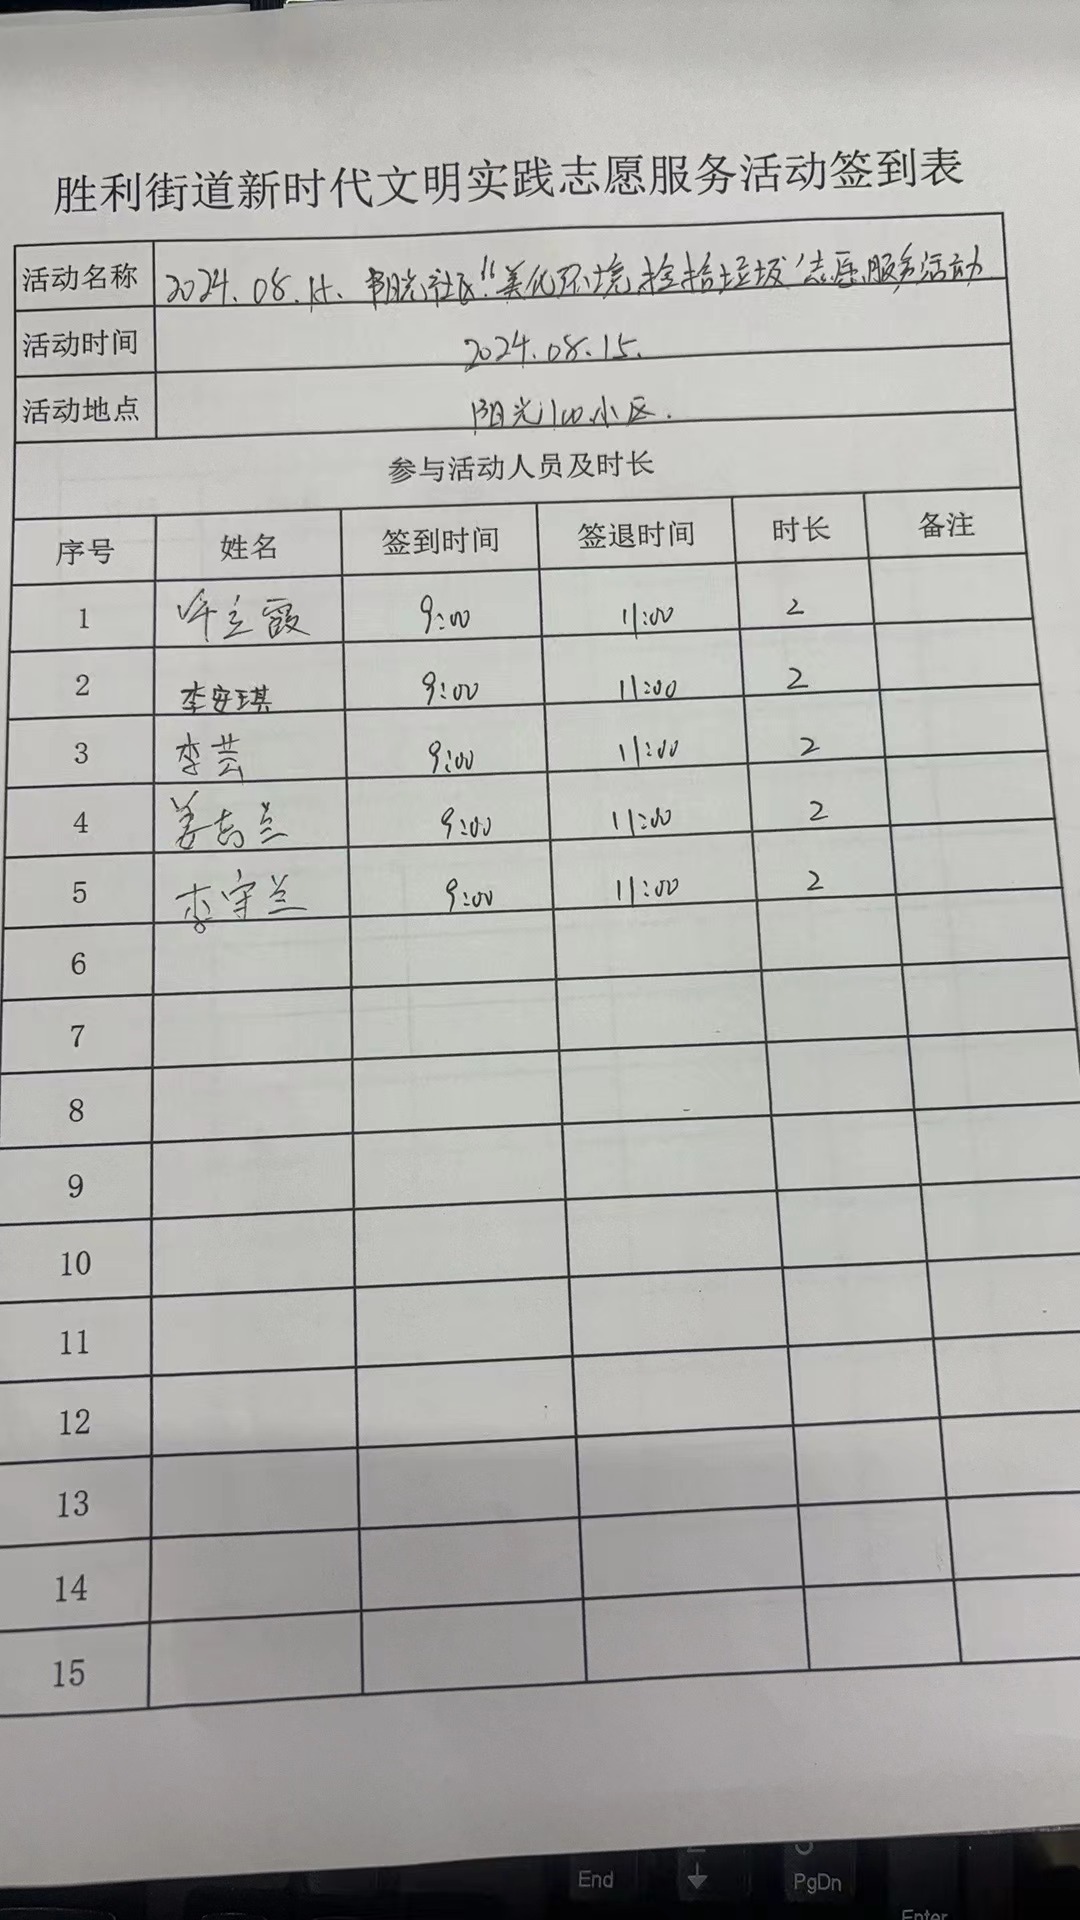 胜利街道新时代文明实践志愿服务活动签到表
活动名称 2024.08.15. 阳光社区"美化环境,捡拾垃圾"志愿服务活动
活动时间 2024.08.15.
活动地点 阳光100小区.
参与活动人员及时长
序号 姓名 签到时间 签退时间 时长 备注
1 许立霞 9:00 11:00 2
2 李安琪 9:00 11:00 2
3 李芸 9:00 11:00 2
4 兰 9:00 11:00 2
5 李守兰 9:00 11:00 2
6
7
8
9
10
11
12
13
14
15
End ↓ PgDn
Enter